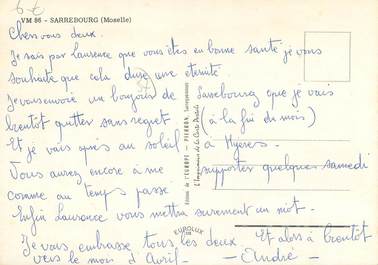 6 €
VM 86 - SARREBOURG (Moselle)
Chers vous deux.
Je sais par Laurence que vous êtes en bonne santé je vous
souhaite que cela dure une eternité
Je vous envoie un bonjour de Sarrebourg que je vais
bientot quitter sans regret (à la fin du mois)
Et je vais après au soleil à Hyeres.
Vous aurez encore à me supporter quelques samedi
comme au temps passe
Enfin Laurence vous mettra surement un mot.
Je vous embrasse tous les deux Et alors à bientot
vers le mois d'Avril. - André -
Editions de l'EUROPE - PIERRON, Sarreguemines
L'Imprimerie de la Carte Postale
EUROLUX